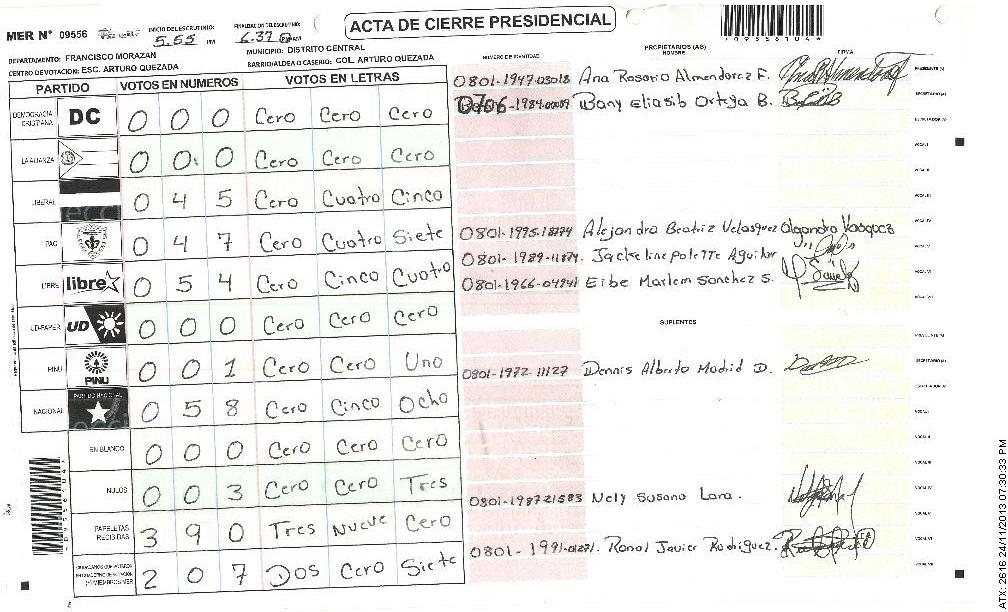 ACTA DE CIERRE PRESIDENCIAL
MER N° 09556
INICIO DEL ESCRUTINIO: 5.55 PM
FINALIZACION DEL ESCRUTINIO: 6.37 PM
09556104
DEPARTAMENTO: FRANCISCO MORAZAN
MUNICIPIO: DISTRITO CENTRAL
CENTRO DE VOTACION: ESC. ARTURO QUEZADA
BARRIO/ALDEA O CASERIO: COL. ARTURO QUEZADA
PARTIDO VOTOS EN NUMEROS VOTOS EN LETRAS
DEMOCRACIA CRISTIANA DC 0 0 0 Cero Cero Cero
LA ALIANZA 0 0 0 Cero Cero Cero
LIBERAL 0 4 5 Cero Cuatro Cinco
PAC 0 4 7 Cero Cuatro Siete
LIBRE libre 0 5 4 Cero Cinco Cuatro
UD-FAPER UD 0 0 0 Cero Cero Cero
PINU PINU 0 0 1 Cero Cero Uno
NACIONAL PARTIDO NACIONAL 0 5 8 Cero Cinco Ocho
EN BLANCO 0 0 0 Cero Cero Cero
NULOS 0 0 3 Cero Cero Tres
PAPELETAS RECIBIDAS 3 9 0 Tres Nueve Cero
2 0 7 Dos Cero Siete
NUMERO DE IDENTIDAD PROPIETARIOS (AS) NOMBRE FIRMA
0801-1947-03018 Ana Rosario Almendarez F. PRESIDENTE (A)
0706-1984-00089 Dany Eliasib Ortega B. SECRETARIO (A)
ESCRUTADOR (A)
VOCAL I
VOCAL II
VOCAL III
0801-1995-18774 Alejandra Beatriz Velasquez VOCAL IV
0801-1989-11874. Jackeline polette Aguilar VOCAL V
0801-1966-04941 Eibe Marlem Sanchez S. VOCAL VI
VOCAL VII
SUPLENTES
PRESIDENTE (A)
0801-1972-11127 Dennis Alberto Madrid D. SECRETARIO (A)
ESCRUTADOR (A)
VOCAL I
VOCAL II
VOCAL III
0801-1987-21583 Nely Susana Lara. VOCAL IV
VOCAL V
0801-1991-01271. Ronal Javier Rodriguez. VOCAL VI
VOCAL VII
ATX: 2616 24/11/2013 07:30:33 PM